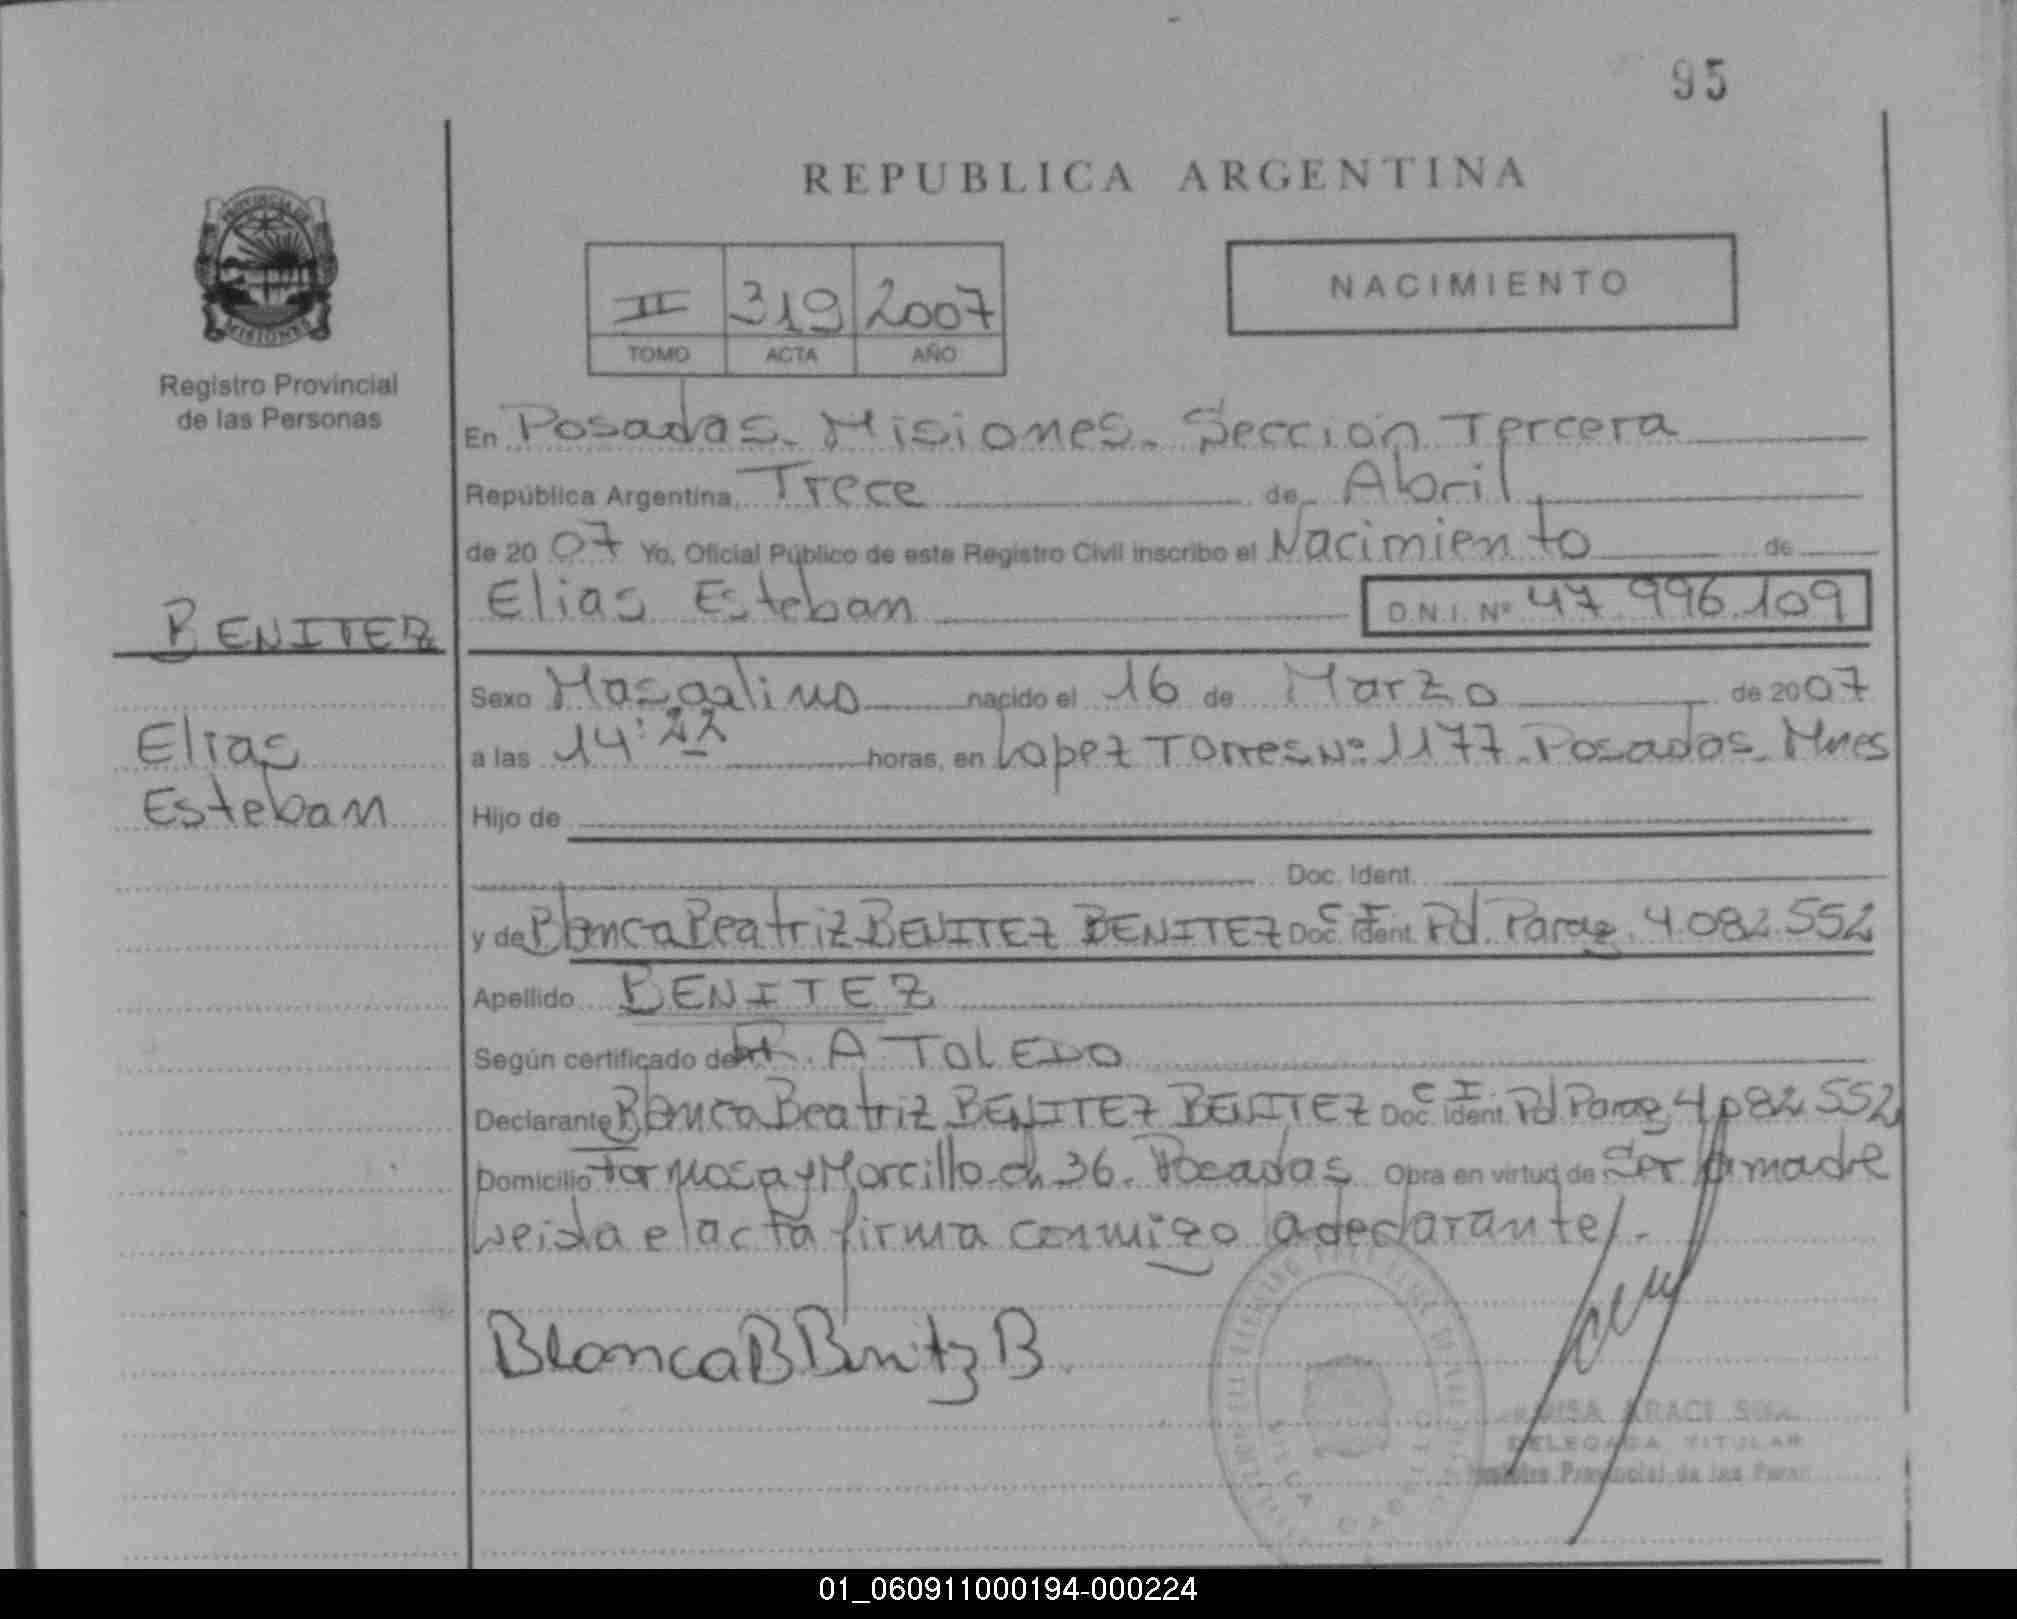 95
REPUBLICA ARGENTINA
PROVINCIA DE
MISIONES
Registro Provincial
de las Personas
II 319 2007
TOMO ACTA AÑO
NACIMIENTO
En Posadas. Misiones. Sección Tercera
República Argentina, Trece de Abril
de 2007 Yo, Oficial Público de este Registro Civil inscribo el Nacimiento de
Elias Esteban D.N.I. Nº 47.996.109
BENITEZ
Sexo Masculino nacido el 16 de Marzo de 2007
Elias
a las 14:22 horas, en Lopez Torres Nº 1177. Posadas. Mnes
Esteban
Hijo de
Doc. Ident.
y de Blanca Beatriz BENITEZ BENITEZ Doc. Ident. C I Pd. Parag. 4.082.552
Apellido BENITEZ
Según certificado de R. A TOLEDO
Declarante Blanca Beatriz BENITEZ BENITEZ Doc. Ident. C I Pd Parag 4082552
Domicilio Formosa y Morcillo. ch 36. Posadas Opra en virtud de Ser la madre
Leida el acta firma conmigo la declarante.-
Blanca B Benitz B.
ARACI
DELEGADA TITULAR
Registro Provincial de las Personas
01_060911000194-000224